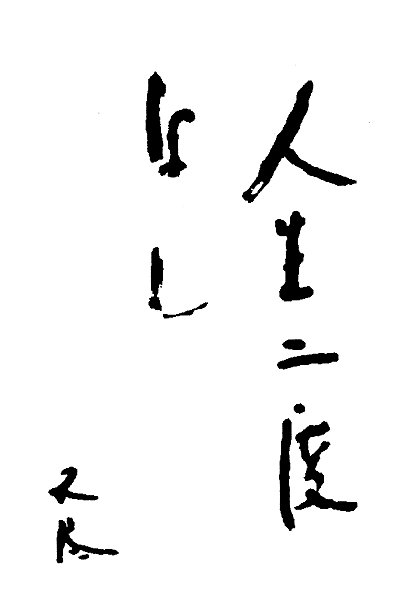 人生二度
なし